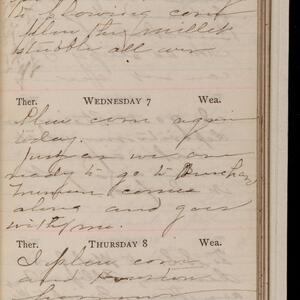 plow the millet
stubble all over
Ther. WEDNESDAY 7 Wea.
Plow corn again
today.
Just as we are
ready to go to
comes
along and goes
with me.
Ther. THURSDAY 8 Wea.
I plow corn
and